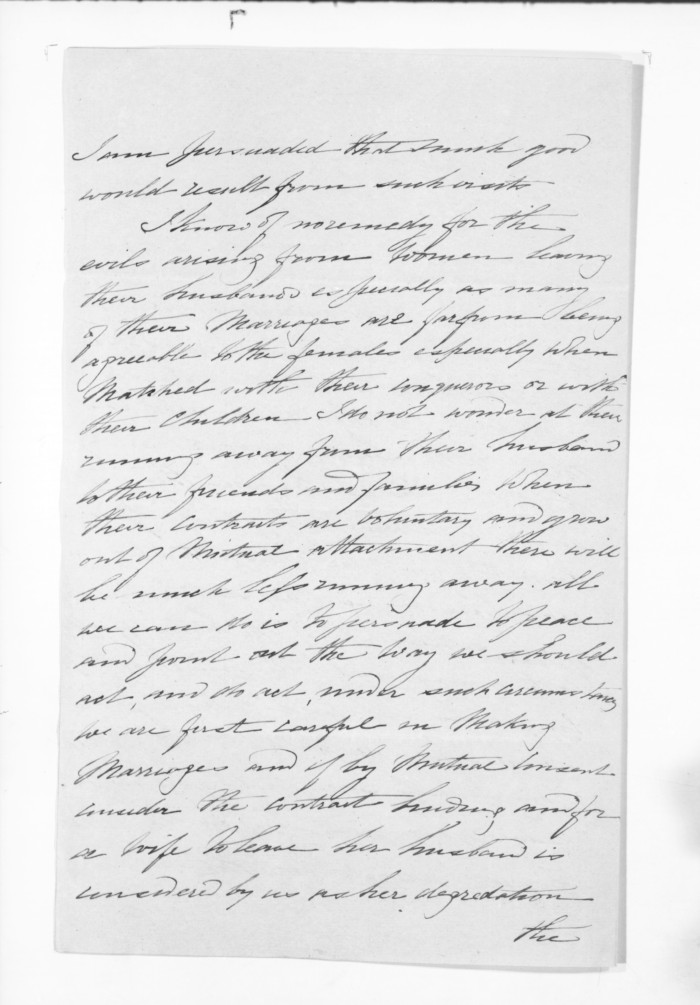 I am persuaded that much good
would result from such visits
I know of no remedy for the
evils arising from Women leaving
their husbands especially as many
of their Marriages are far from being
agreeable to the females especially when
Matched with their conquerors or with
their Children I do not wonder at their
running away from their husband
to their friends and families When
their contracts are voluntary and grow
out of Mutual attachment there will
be much less running away. all
we can do is to persuade to peace
and point out the way we should
act, and do act, under such circumstances
we are first careful in Making
Marriages and if by Mutual Consent
consider the contract binding and for
a Wife to leave her husband is
considered by us as her degredation
the